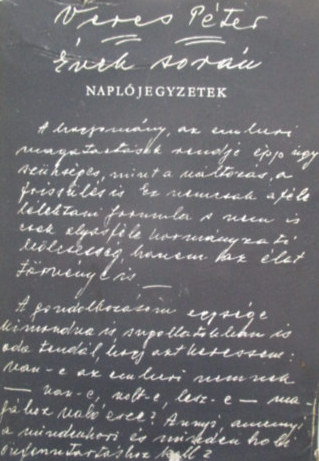 Veres Péter
Évek során
NAPLÓJEGYZETEK
A hagyomány, az emberi
magatartások rendje épp úgy
szükséges, mint a változás, a
frissülés is. Ez nemcsak a féle
lélektani formula s nem is
csak olyasféle kormányzati
bölcsesség, hanem az élet
törvénye is.
A gondolkozásom egysége
kimondva is
oda tendál, hogy azt keressem:
van-e az emberi nemnek
— van-e, volt-e, lesz-e — ma-
gához való esze? Annyi, amennyi
a mindenkori és minden holi
önfenntartáshoz kell?